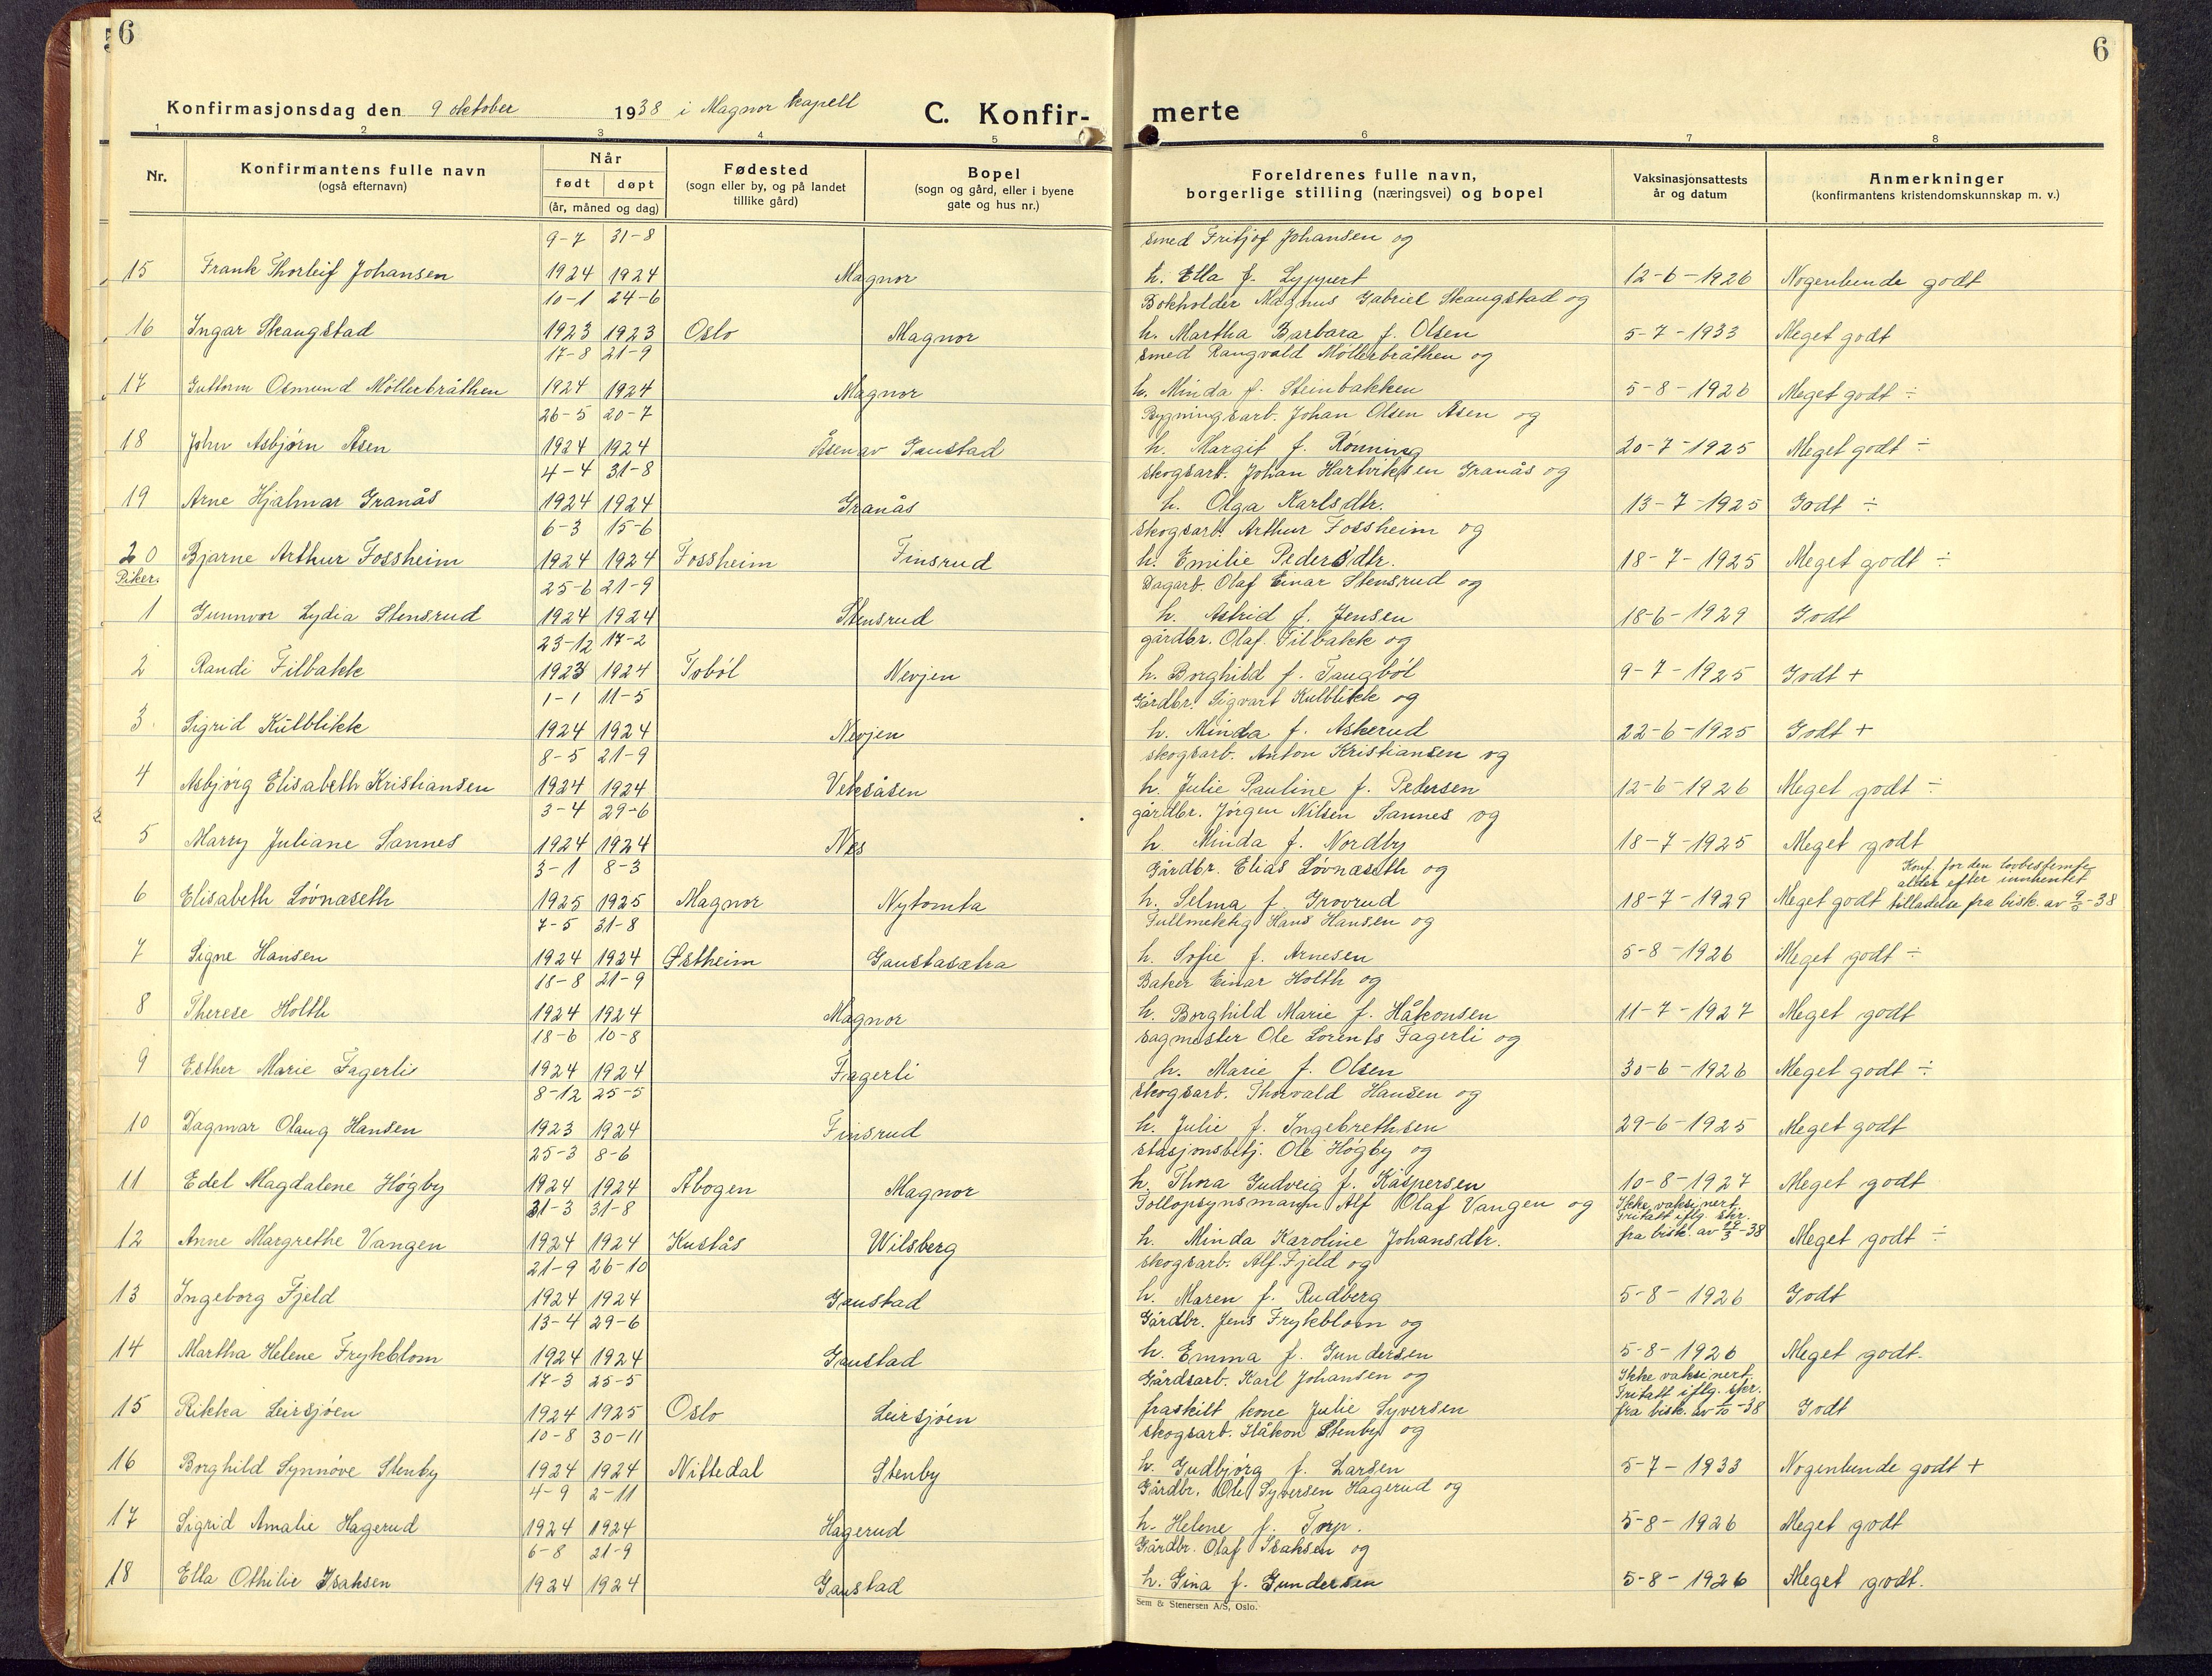 6
6
Konfirmasjonsdag den 9 oktober 1938 i Magnor kapell C. Konfir-merte
1 2 3 4 5 6 7 8
Nr. Konfirmantens fulle navn (også efternavn) Når født døpt (år, måned og dag) Fødested (sogn eller by, og på landet tillike gård) Bopel (sogn og gård, eller i byene gate og hus nr.) Foreldrenes fulle navn, borgerlige stilling (næringsvei) og bopel Vaksinasjonsattests år og datum Anmerkninger (konfirmantens kristendomskunnskap m. v.)
9-7 31-8 Smed Fritjof Johansen og
15 Frank Thorleif Johansen 1924 1924 Magnor h. Ella f. Lyppert 12-6-1926 Nogenlunde godt
10-1 24-6 Bokholder Magnus Gabriel Skaugstad og
16 Ingar Skaugstad 1923 1923 Oslo Magnor h. Martha Barbara f. Olsen 5-7-1933 Meget godt
17-8 21-9 Smed Rangvald Møllerbråthen og
17 Guttorm Osmund Møllerbråthen 1924 1924 Magnor h. Minda f. Steinbakken 5-8-1926 Meget godt ÷
26-5 20-7 Bygningsarb. Johan Olsen Åsen og
18 John Asbjørn Åsen 1924 1924 Åsen av Gaustad h. Margit f. Rønning 20-7-1925 Meget godt ÷
4-4 31-8 Skogsarb. Johan Hartviksen Granås og
19 Arne Hjalmar Granås 1924 1924 Granås h. Olga Karlsdtr. 13-7-1925 Godt ÷
6-3 15-6 Skogsarb. Arthur Fossheim og
20 Bjarne Arthur Fossheim 1924 1924 Fossheim Finsrud h. Emilie Pedersdtr. 18-7-1925 Meget godt ÷
Piker. 25-6 21-9 Dagarb. Olaf Einar Stensrud og
1 Gunnvor Lydia Stensrud 1924 1924 Stensrud h. Astrid f. Jensen 18-6-1929 Godt
23-12 17-2 gårdbr. Olaf Tilbakk og
2 Randi Tilbakk 1923 1924 Tobøl Nevjen h. Borghild f. Taugbøl 9-7-1925 Godt +
1-1 11-5 Gårdbr. Sigvart Kulblikk og
3 Sigrid Kulblikk 1924 1924 Nevjen h. Minda f. Askerud 22-6-1925 Godt +
8-5 21-9 skogsarb. Anton Kristiansen og
4 Asbjørg Elisabeth Kristiansen 1924 1924 Veksåsen h. Julie Pauline f. Pedersen 12-6-1926 Meget godt ÷
3-4 29-6 gårdbr. Jørgen Nilsen Sannes og
5 Marry Juliane Sannes 1924 1924 Nes h. Minda f. Nordby 18-7-1925 Meget godt
3-1 8-3 Gårdbr. Elias Løvnæseth og Konf. før den lovbestemte
alder efter innhentet
6 Elisabeth Løvnæseth 1925 1925 Magnor Nytomta h. Selma f. Grovrud 18-7-1929 Meget godt tilladelse fra bisk. av 9/5-38
7-5 31-8 Fullmektig Hans Hansen og
7 Signe Hansen 1924 1924 Østheim Gaustasætra h. Sofie f. Arnesen 5-8-1926 Meget godt ÷
18-8 21-9 Baker Einar Holth og
8 Therese Holth 1924 1924 Magnor h. Borghild Marie f. Håkonsen 11-7-1927 Meget godt
18-6 10-8 sagmester Ole Lorents Fagerli og
9 Esther Marie Fagerli 1924 1924 Fagerli h. Marie f. Olsen 30-6-1926 Meget godt ÷
8-12 25-5 Skogsarb. Thorvald Hansen og
10 Dagmar Olaug Hansen 1923 1924 Finsrud h. Julie f. Ingebrethsen 29-6-1925 Meget godt
25-3 8-6 stasjonsbetj. Ole Høgby og
11 Edel Magdalene Høgby 1924 1924 Åbogen Magnor h. Thora Gudveig f. Kaspersen 10-8-1927 Meget godt
31-3 31-8 Tollopsynsmann Alf Olaf Vangen og Ikke vaksinert.
Fritatt iflg. skr.
12 Anne Margrethe Vangen 1924 1924 Kustås Wilsberg h. Minda Karoline Johansdtr. fra bisk. av 29/3-38 Meget godt ÷
21-9 26-10 skogsarb. Alf Fjeld og
13 Ingeborg Fjeld 1924 1924 Gaustad h. Maren f. Rudberg 5-8-1926 Godt
13-4 29-6 Gårdbr. Jens Frykblom og
14 Martha Helene Frykblom 1924 1924 Gaustad h. Emma f. Gundersen 5-8-1926 Meget godt.
17-3 25-5 Gårdsarb. Karl Johansen og Ikke vaksinert.
Fritatt iflg. skr.
15 Rikka Leirsjøen 1924 1925 Oslo Leirsjøen fraskilt kone Julie Syversen fra bisk. av /10-38 Godt
10-8 30-11 skogsarb. Håkon Stenby og
16 Borghild Synnøve Stenby 1924 1924 Nittedal Stenby h. Gudbjørg f. Larsen 5-7-1933 Nogenlunde godt +
4-9 2-11 Gårdbr. Ole Syversen Hagerud og
17 Sigrid Amalie Hagerud 1924 1924 Hagerud h. Helene f. Torp. 5-8-1926 Meget godt
6-8 21-9 Gårdbr. Olaf Isaksen og
18 Ella Othilie Isaksen 1924 1924 Gaustad h. Gina f. Gundersen 5-8-1926 Meget godt.
Sem & Stenersen A/S, Oslo.